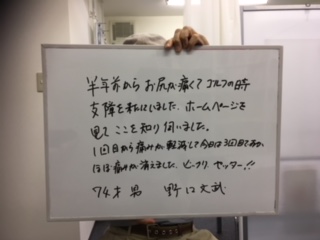 半年前から お尻が痛くて ゴルフの時
支障を私にいました。ホームページを
見て ここを知り伺いました。
1回目から痛みが軽減して今日は3回目であるが、
ほぼ痛みが消えました。ビックリ、セッター!!
74才 男 野口